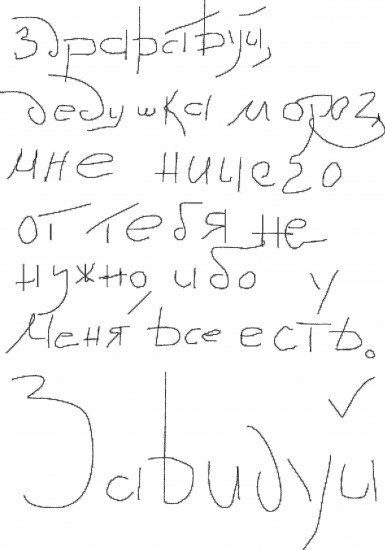 здрафствуй,
дедушка мороз,
мне ничего
от тебя не
нужно, ибо у
меня все есть.
Завидуй